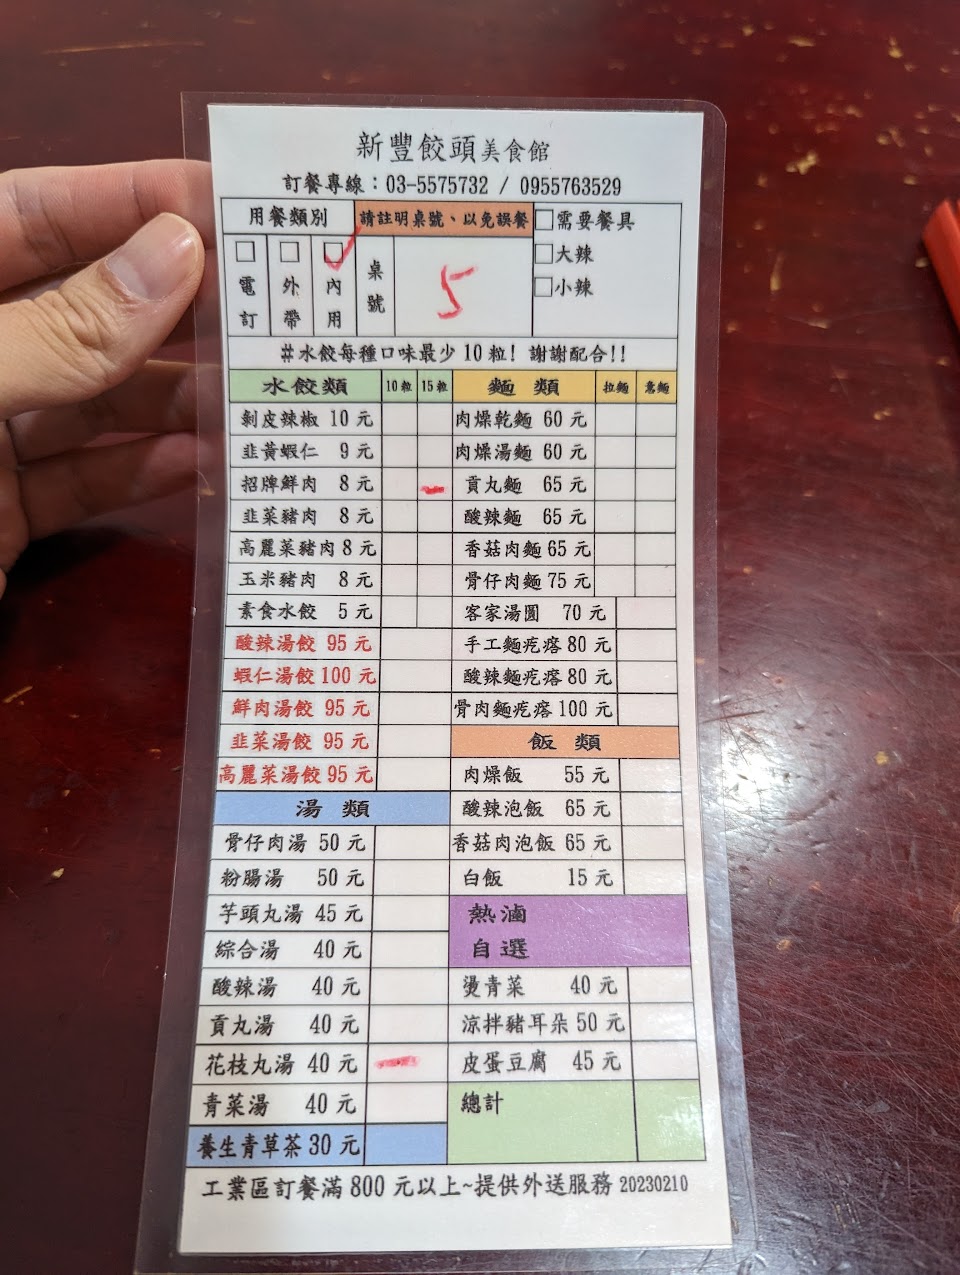 新豐餃頭美食館
訂餐專線：03-5575732 / 0955763529
用餐類別
請註明桌號、以免誤餐
□需要餐具
□大辣
□小辣
□電訂
□外帶
□內用
桌號
5
#水餃每種口味最少10粒! 謝謝配合!!
水餃類 10粒 15粒
剝皮辣椒 10 元
韭黃蝦仁 9 元
招牌鮮肉 8 元
韭菜豬肉 8 元
高麗菜豬肉 8 元
玉米豬肉 8 元
素食水餃 5 元
酸辣湯餃 95 元
蝦仁湯餃 100 元
鮮肉湯餃 95 元
韭菜湯餃 95 元
高麗菜湯餃 95 元
湯類
骨仔肉湯 50 元
粉腸湯 50 元
芋頭丸湯 45 元
綜合湯 40 元
酸辣湯 40 元
貢丸湯 40 元
花枝丸湯 40 元
青菜湯 40 元
養生青草茶 30 元
麵類 拉麵 意麵
肉燥乾麵 60 元
肉燥湯麵 60 元
貢丸麵 65 元
酸辣麵 65 元
香菇肉麵 65 元
骨仔肉麵 75 元
客家湯圓 70 元
手工麵疙瘩 80 元
酸辣麵疙瘩 80 元
骨肉麵疙瘩 100 元
飯類
肉燥飯 55 元
酸辣泡飯 65 元
香菇肉泡飯 65 元
白飯 15 元
熱滷
自選
燙青菜 40 元
涼拌豬耳朵 50 元
皮蛋豆腐 45 元
總計
工業區訂餐滿 800 元以上~提供外送服務 20230210